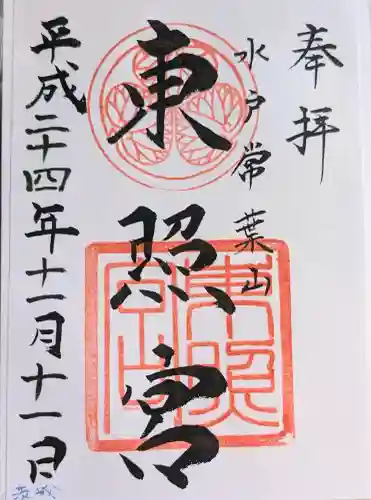 奉拝
水戸常葉山
東照宮
平成二十四年十一月十一日
茨城